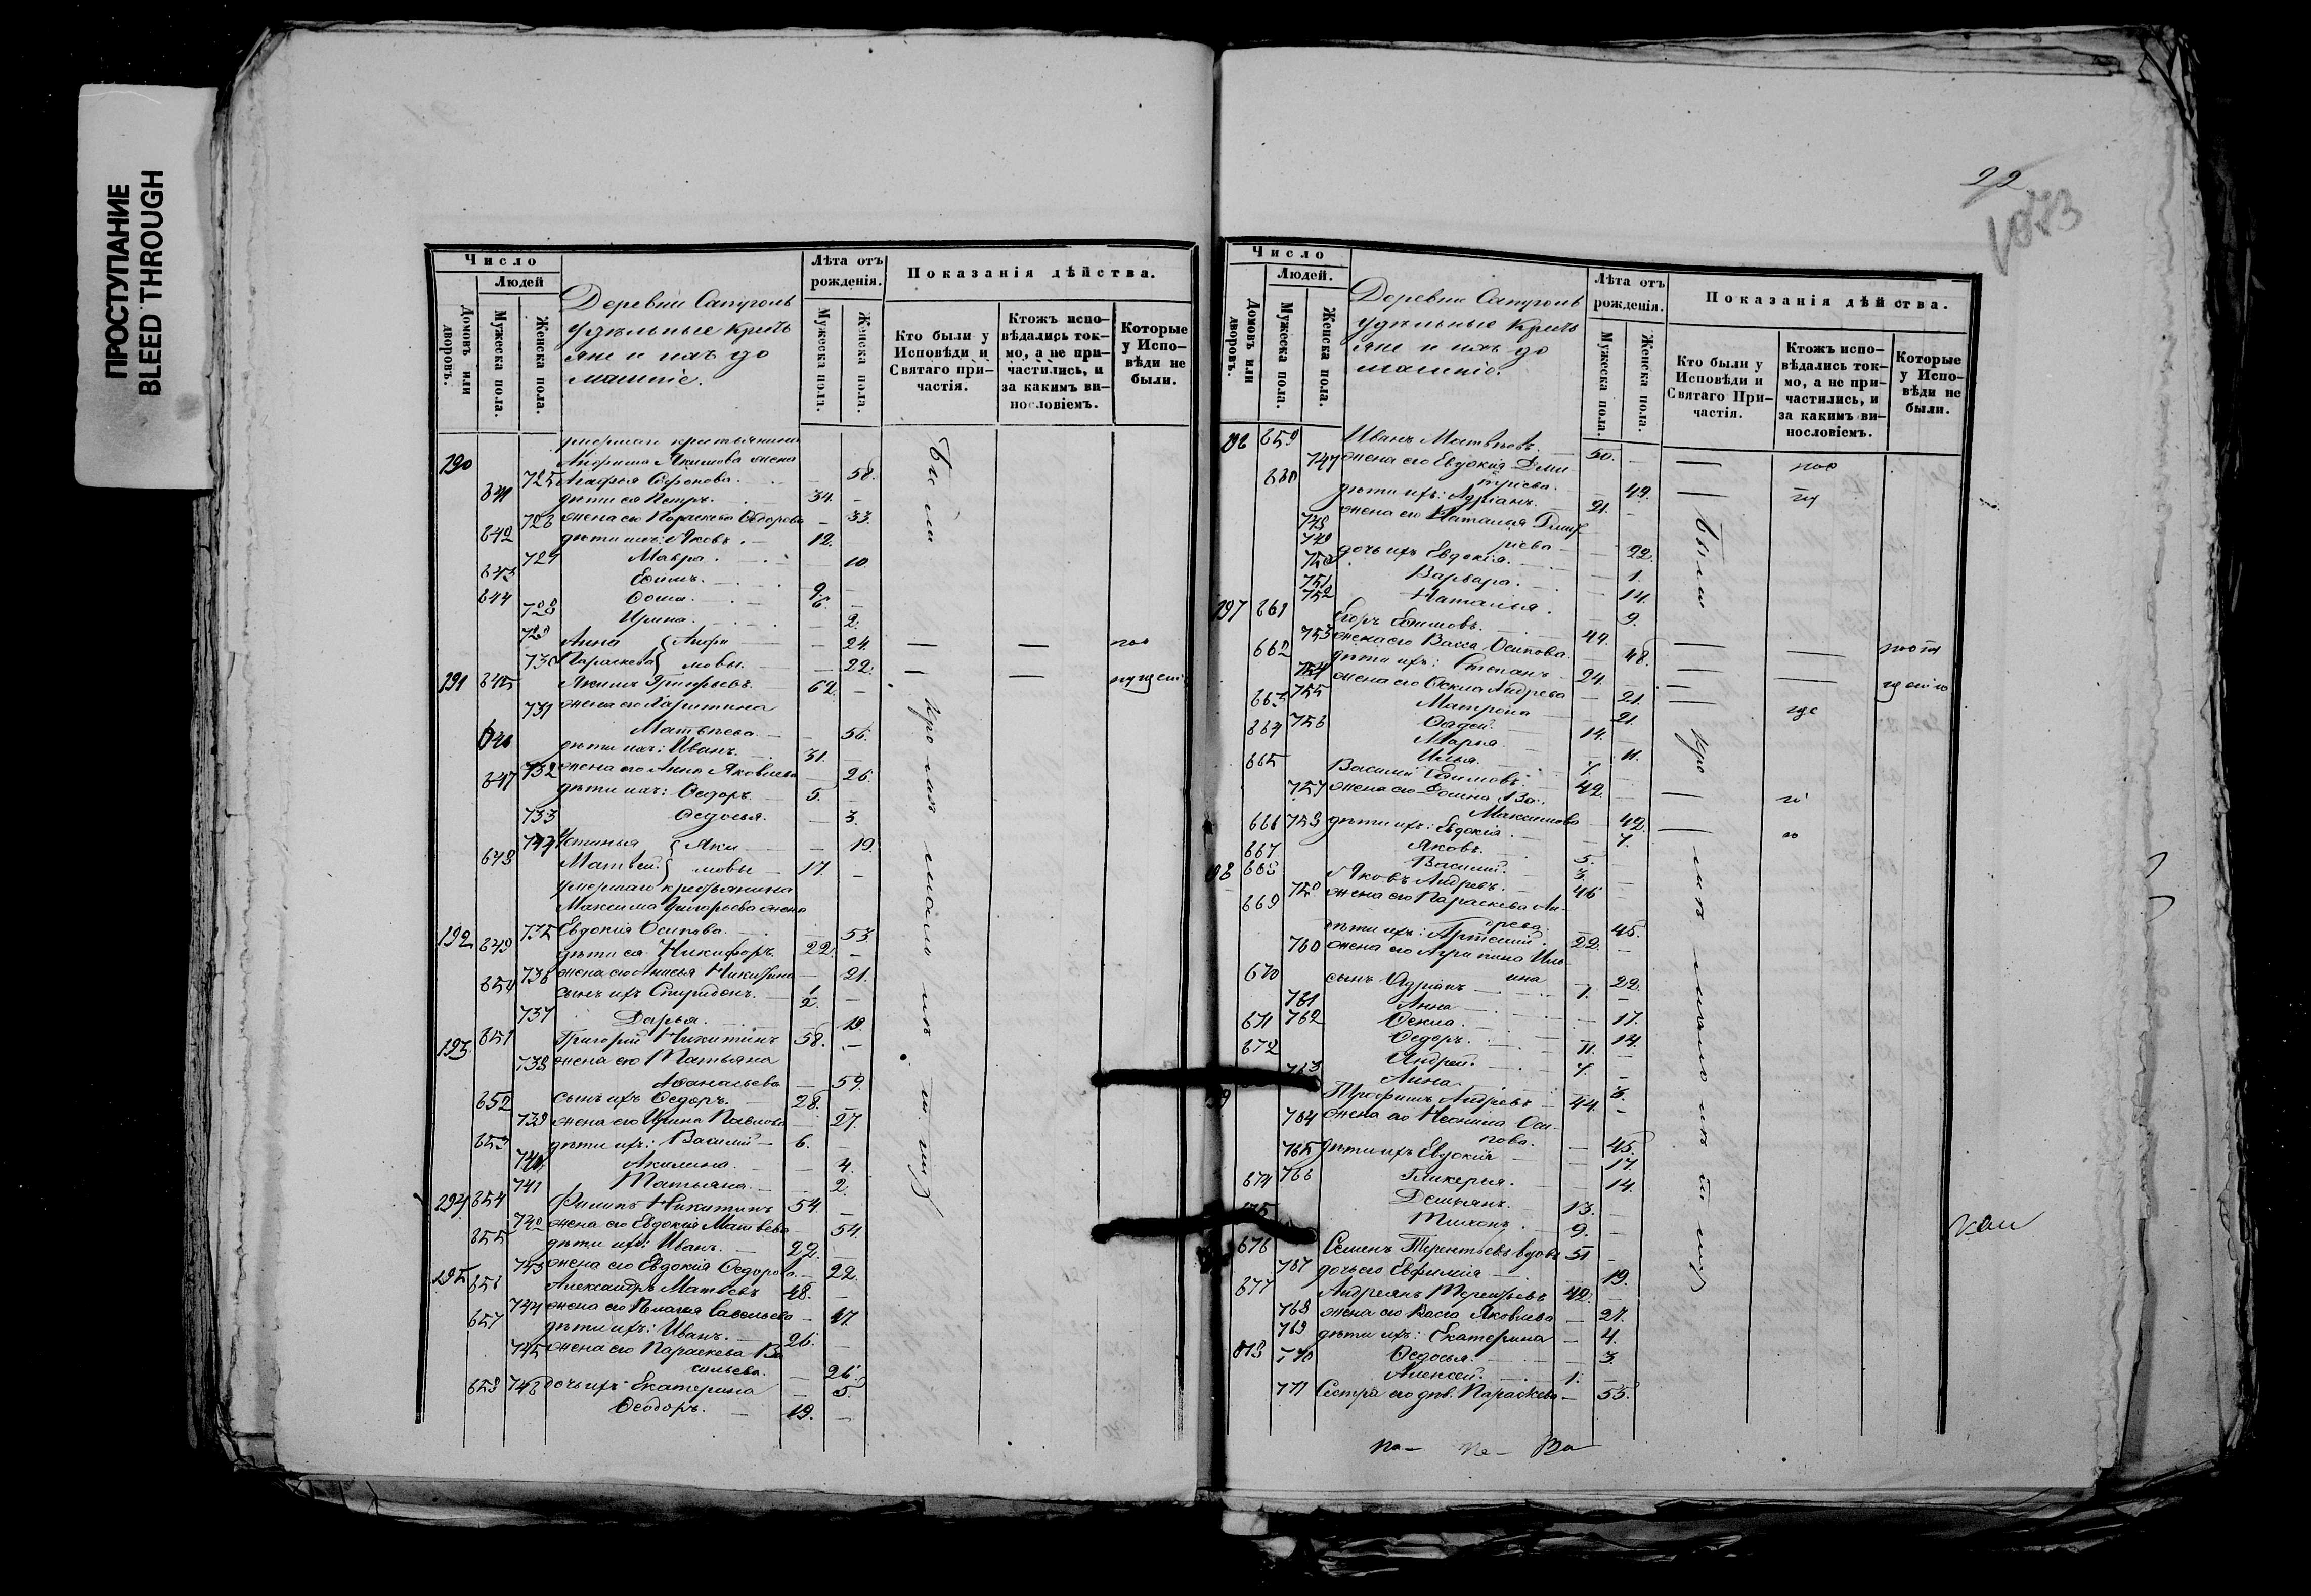 ПРОСТУПАНИЕ
BLEED THROUGH
Число
Людей
Домовъ или дворовъ.
Мужеска пола.
Женска пола.
Деревни
удѣльные кресть
яне и ихъ до
машніе.
Лѣта отъ рожденія.
Мужеска пола.
Женска пола.
Показанія дѣйства.
Кто были у Исповѣди и Святаго причастія.
Ктожъ исповѣдались токмо, а не причастились, и за какимъ винословіемъ.
Которые у Исповѣди не были.
умершаго крестьянина
190 Анфима Якимова жена
725 Агафья Софонова. 58.
641 дѣти ея Петръ. 34.
726 жена его Параскева Ѳедорова 33.
642 дѣти ихъ: Яковъ. 12.
727 Мавра. 10.
643 Ефимъ. 9.
644 Ѳома. 6.
728 Ирина. 2.
729 Анна Анфи 24.
730 Параскева мовы. 22.
191 645 Якимъ Григорьевъ. 62.
731 жена его Харитина
Матвѣева. 56.
646 дѣти ихъ: Иванъ. 31.
732 жена его Анна Яковлева 26.
647 дѣти ихъ: Ѳедоръ. 5.
733 Ѳедосья. 3.
734 Устинья Яки 19.
648 Матвѣй мовы 17.
умершаго крестьянина
Максима Григорьева жена
192 735 Евдокия Осипова. 53.
649 дѣти ея Никифоръ. 22.
736 жена его Анисья Никитина 21.
650 сынъ ихъ Спиридонъ.
737 Дарья. 19.
193. 651 Григорий Никитинъ 58.
738 жена его Татьяна
Афанасьева 59.
652 сынъ ихъ Ѳедоръ. 28.
739 жена его Ирина Павлова 27.
653 дѣти ихъ: Василий 6.
740 Акилина. 4.
741 Татьяна. 2.
194. 654 Филипъ Никитинъ 54.
742 жена его Евдокия Матвѣева 54.
655 дѣти ихъ: Иванъ. 22.
743 жена его Евдокия Ѳедорова. 22.
195. 656 Александръ Матвѣевъ 48.
744 жена его Пелагия Савельева 47.
657 дѣти ихъ: Иванъ. 26.
745 жена его Параскева Ва
сильева. 26.
658 746 дочь ихъ Екатерина 5.
Ѳеодоръ. 19.
Были
22
Число
Людей.
Домовъ или дворовъ.
Мужеска пола.
Женска пола.
Деревни
удѣльные кресть
яне и ихъ до
машніе.
Лѣта отъ рожденія.
Мужеска пола.
Женска пола.
Показанія дѣйства.
Кто были у Исповѣди и Святаго Причастія.
Ктожъ исповѣдались токмо, а не причастились, и за какимъ винословіемъ.
Которые у Исповѣди не были.
659 Иванъ Матвѣевъ. 50.
747 жена его Евдокия Дми
трiева. 49.
660 дѣти ихъ: Адрианъ. 21.
748 жена его Наталья Дмит
рiева 22.
749 дочь ихъ Евдокия. 1.
750 Варвара. 14.
751 Наталья. 9.
197 661 Егоръ Ефимовъ. 49.
753 жена его Васса Осипова. 48.
662 дѣти ихъ: Степанъ. 24.
754 жена его Ѳекла Андреева 21.
755 Матрона 21.
663 Ѳадей. 14.
756 Марья. 11.
664 Илья. 7.
665 Василий Ефимовъ. 42.
757 жена его Домна
Максимова 42.
758 дѣти ихъ: Евдокия. 7.
666 Яковъ. 5.
667 Василий. 3.
668 Яковъ Андреевъ. 46
759 жена его Параскева Ан-
дреева. 45.
669 дѣти ихъ: Артемий. 22.
760 жена его Агрипина Иль-
ина 22.
670 сынъ Адрианъ 1.
761 Анна 17.
762 Ѳекла. 14.
671 Ѳедоръ. 11.
672 Андрей. 7.
763 Анна. 3.
Трофимъ Андреевъ 44.
764 жена его Неонила Оси-
пова. 45.
765 дѣти ихъ Евдокия 17
766 Гликерья. 14.
674 Демьянъ. 13.
675 Тихонъ. 9.
676 Семенъ Терентьевъ вдовъ 51
767 дочь его Евфимия 19.
677 Андреянъ Терентьевъ 42.
768 жена его Васса Яковлева 27.
769 дѣти ихъ: Екатерина 4.
770 Ѳедосья. 3.
678 Алексей. 1.
771 Сестра его дѣв. Параскева 55.
Были